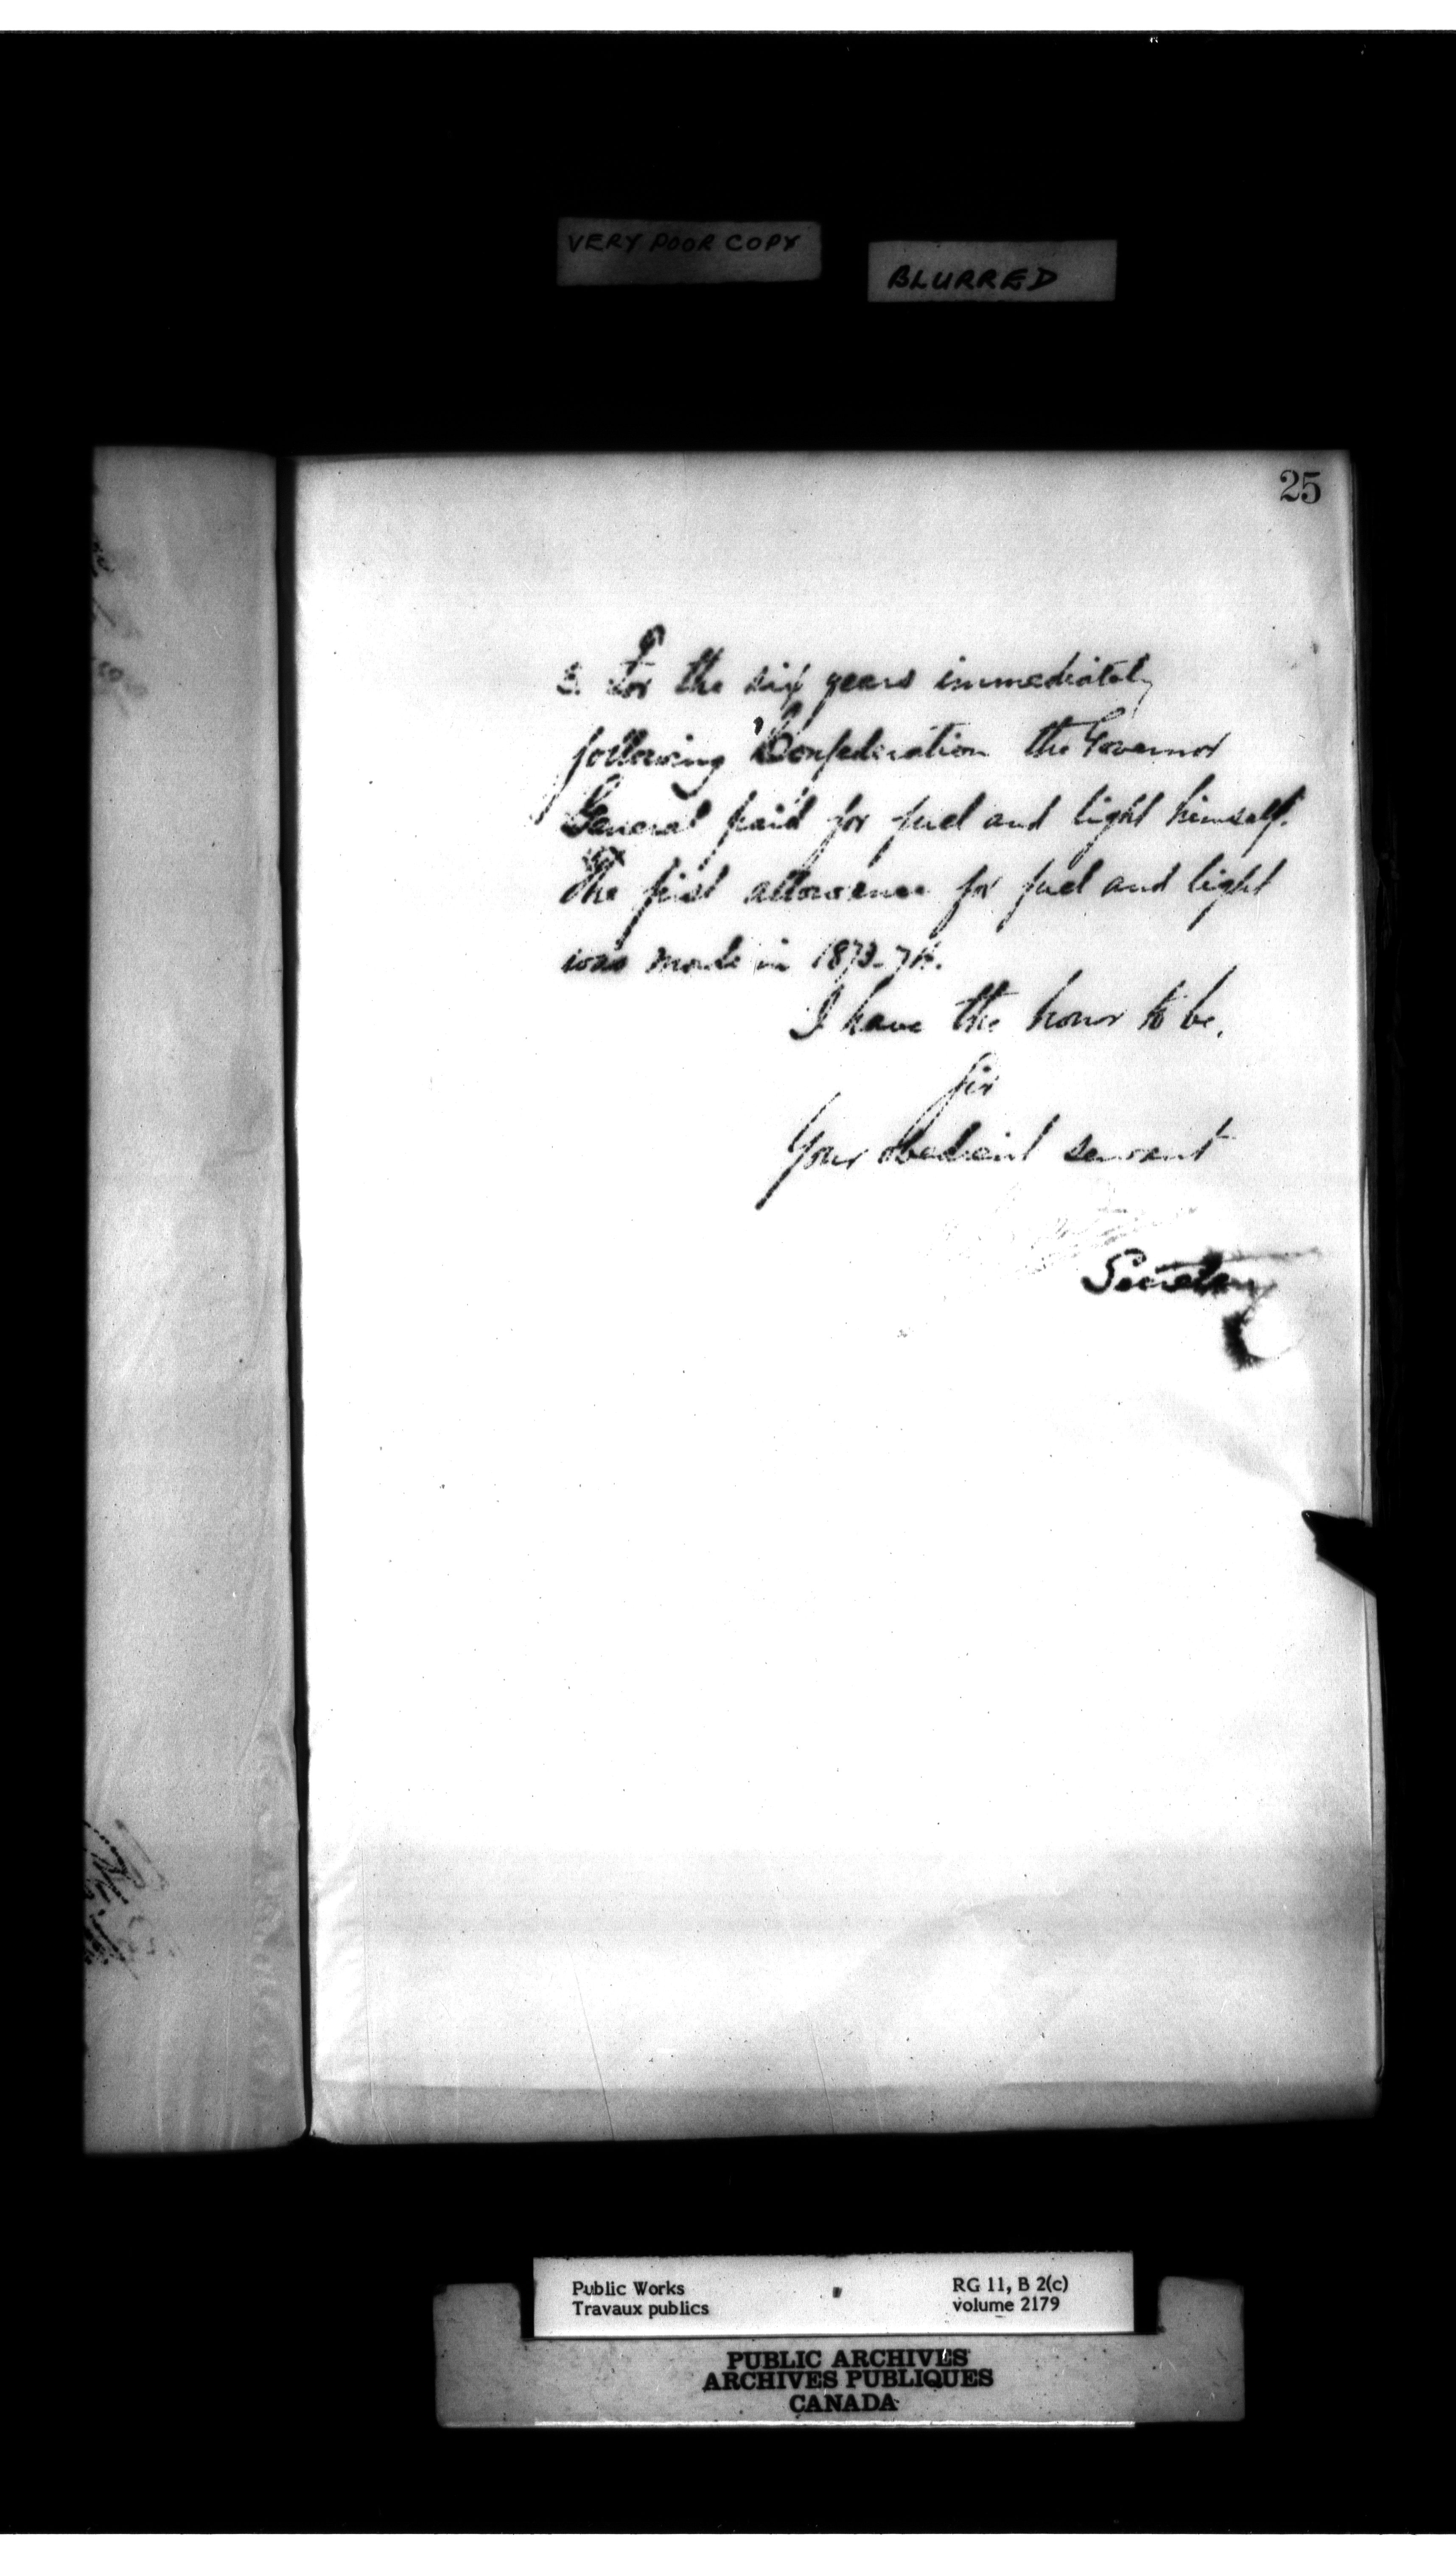 VERY POOR COPY
BLURRED
25
3. For the six years immediately
following Confederation the Governor
General paid for fuel and light himself.
The first allowance for fuel and light
was made in 1873-74.
I have the honor to be,
Sir
Your obedient servant
Secretary
Public Works
Travaux publics
RG 11, B 2(c)
volume 2179
PUBLIC ARCHIVES
ARCHIVES PUBLIQUES
CANADA